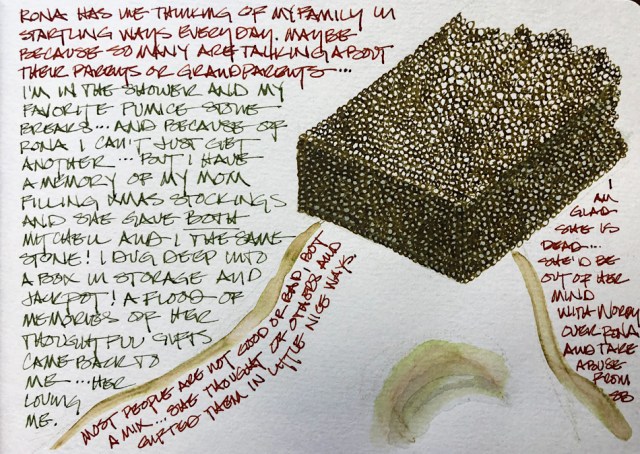 RONA HAS ME THINKING OF MY FAMILY IN
STARTLING WAYS EVERYDAY. MAYBE
BECAUSE SO MANY ARE TALKING ABOUT
THEIR PARENTS OR GRANDPARENTS...
I'M IN THE SHOWER AND MY
FAVORITE PUMICE STONE
BREAKS... AND BECAUSE OF
RONA I CAN'T JUST GET
ANOTHER... BUT I HAVE
A MEMORY OF MY MOM
FILLING XMAS STOCKINGS
AND SHE GAVE BOTH
MITCHELL AND I THE SAME
STONE! I DUG DEEP INTO
A BOX IN STORAGE AND
JACKPOT! A FLOOD OF
MEMORIES OF HER
THOUGHTFUL GIFTS
CAME BACK TO
ME... HER
LOVING
ME.
MOST PEOPLE ARE NOT GOOD OR BAD, BUT
A MIX... SHE THOUGHT OF OTHERS AND
GIFTED THEM IN LITTLE NICE WAYS.
I
AM
GLAD
SHE IS
DEAD...
SHE'D BE
OUT OF HER
MIND
WITH WORRY
OVER RONA
AND TAKE
ABUSE
FROM
SB